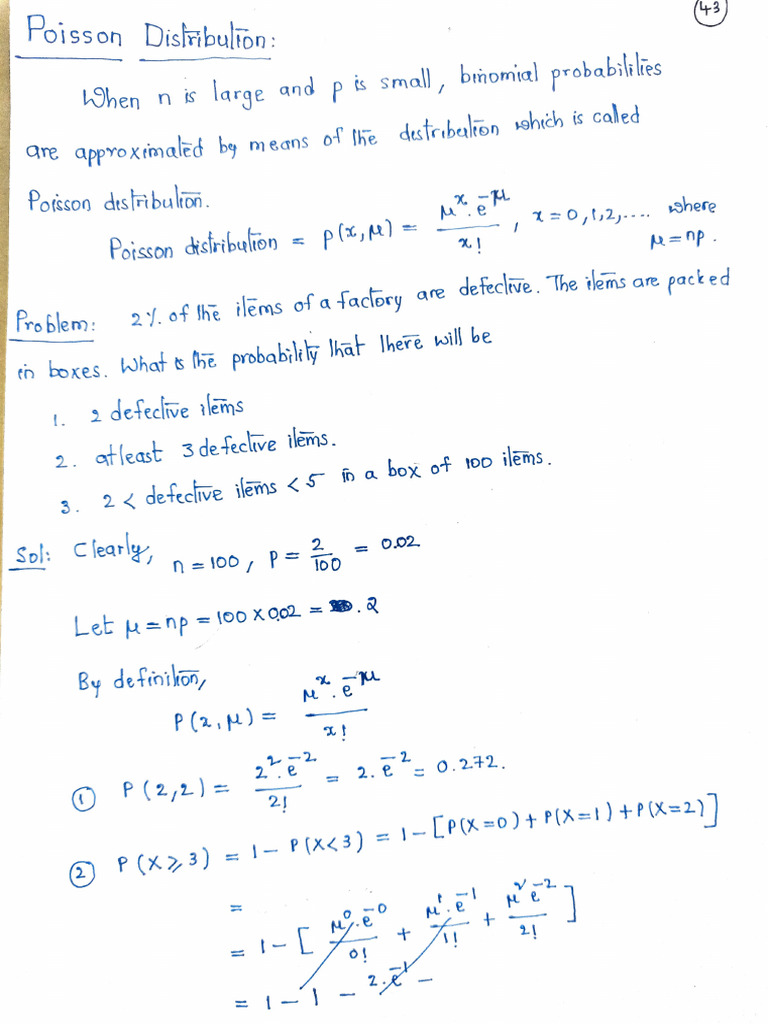 43
Poisson Distribution:
When n is large and p is small, binomial probabilities
are approximated by means of the distribution which is called
Poisson distribution.
Poisson distribution = p(x,μ) = μ^x . e^-μ / x! , x = 0,1,2,.... where
μ = np.
Problem: 2% of the items of a factory are defective. The items are packed
in boxes. What is the probability that there will be
1. 2 defective items
2. atleast 3 defective items.
3. 2 < defective items < 5 in a box of 100 items.
Sol: Clearly, n = 100, p = 2/100 = 0.02
Let μ = np = 100 x 0.02 = . 2
By definition,
P(2,μ) = μ^x . e^-μ / x!
① P(2,2) = 2^2 . e^-2 / 2! = 2. e^-2 = 0.272.
② P(X ≥ 3) = 1 - P(X<3) = 1 - [P(X=0) + P(X=1) + P(X=2)]
=
= 1 - [ μ^0 . e^-0 / 0! + μ^1 . e^-1 / 1! + μ^2 e^-2 / 2! ]
= 1 - 1 - 2. e^-1 -